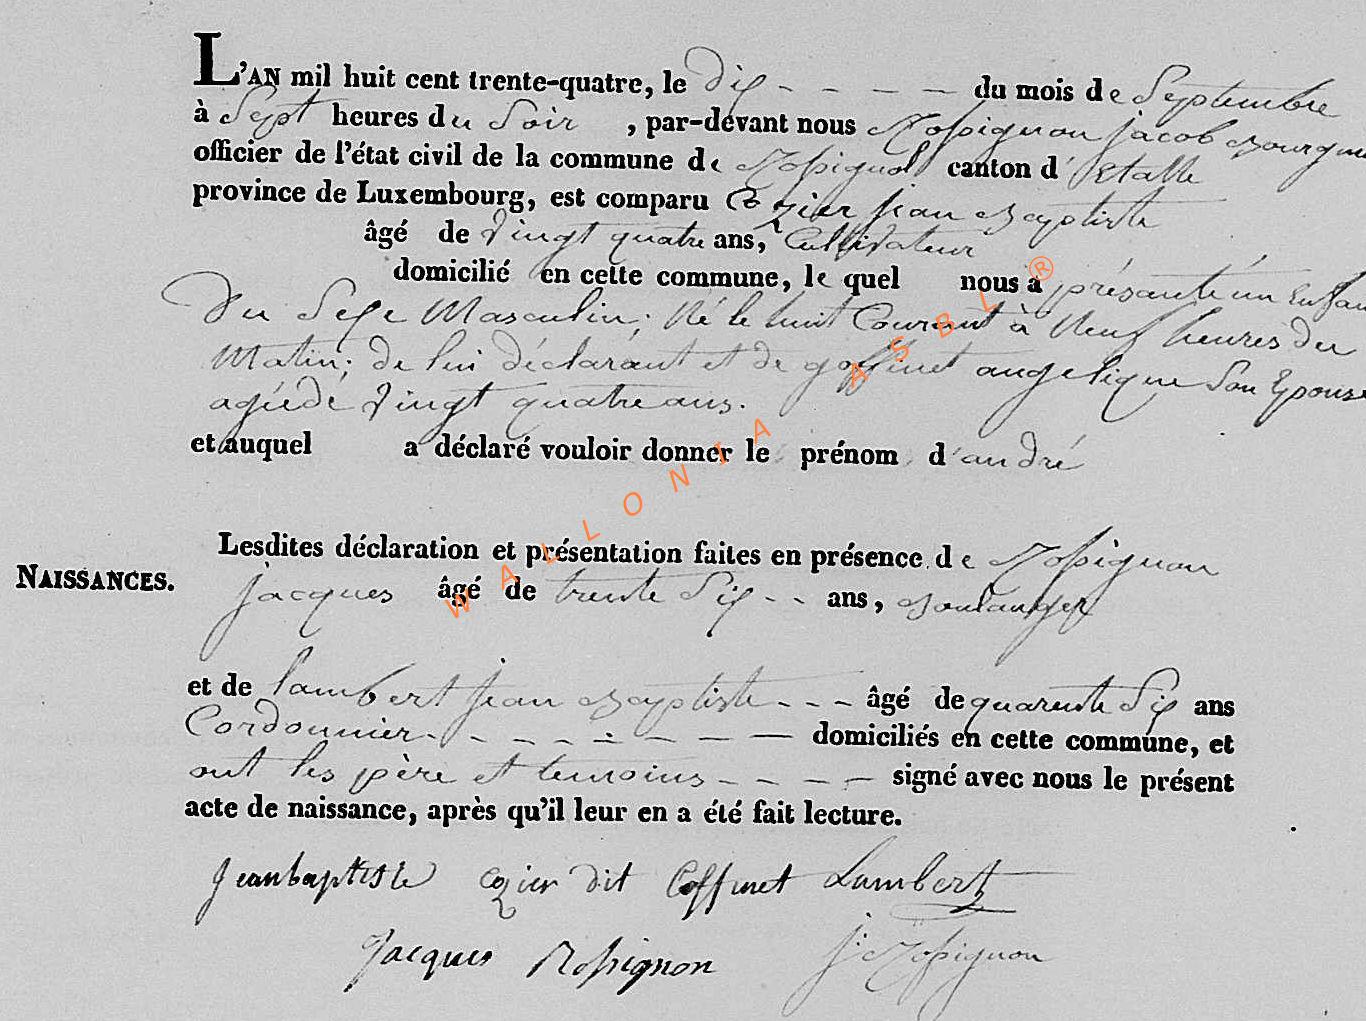 L'AN mil huit cent trente-quatre, le dix - - - - du mois de Septembre
à Sept heures du Soir , par-devant nous Rossignon jacob Bourgmes
officier de l'état civil de la commune de Rossignol canton d'Etalle
province de Luxembourg, est comparu Cozier jean Baptiste
âgé de vingt quatre ans, Cultivateur
domicilié en cette commune, le quel nous a présenté un Enfan
Du Sexe Masculin; Né le huit Courant à Neuf heures du
Matin; de lui déclarant et de goffinet angelique Son Epouse
agiéde vingt quatre ans.
et auquel a déclaré vouloir donner le prénom d'andré
Lesdites déclaration et présentation faites en présence de Rossignon
NAISSANCES.
jacques âgé de trente Six - - ans, Boulanger
et de lambert jean Baptiste - - - âgé de quarente Six ans
Cordonnier - - - - - - - - domiciliés en cette commune, et
ont les père et temoins - - - - signé avec nous le présent
acte de naissance, après qu'il leur en a été fait lecture.
Jeanbaptiste cozier dit Coffinet Lambert
Jacques Rossignon J: Rossignon
WALLONIA ASBL ®